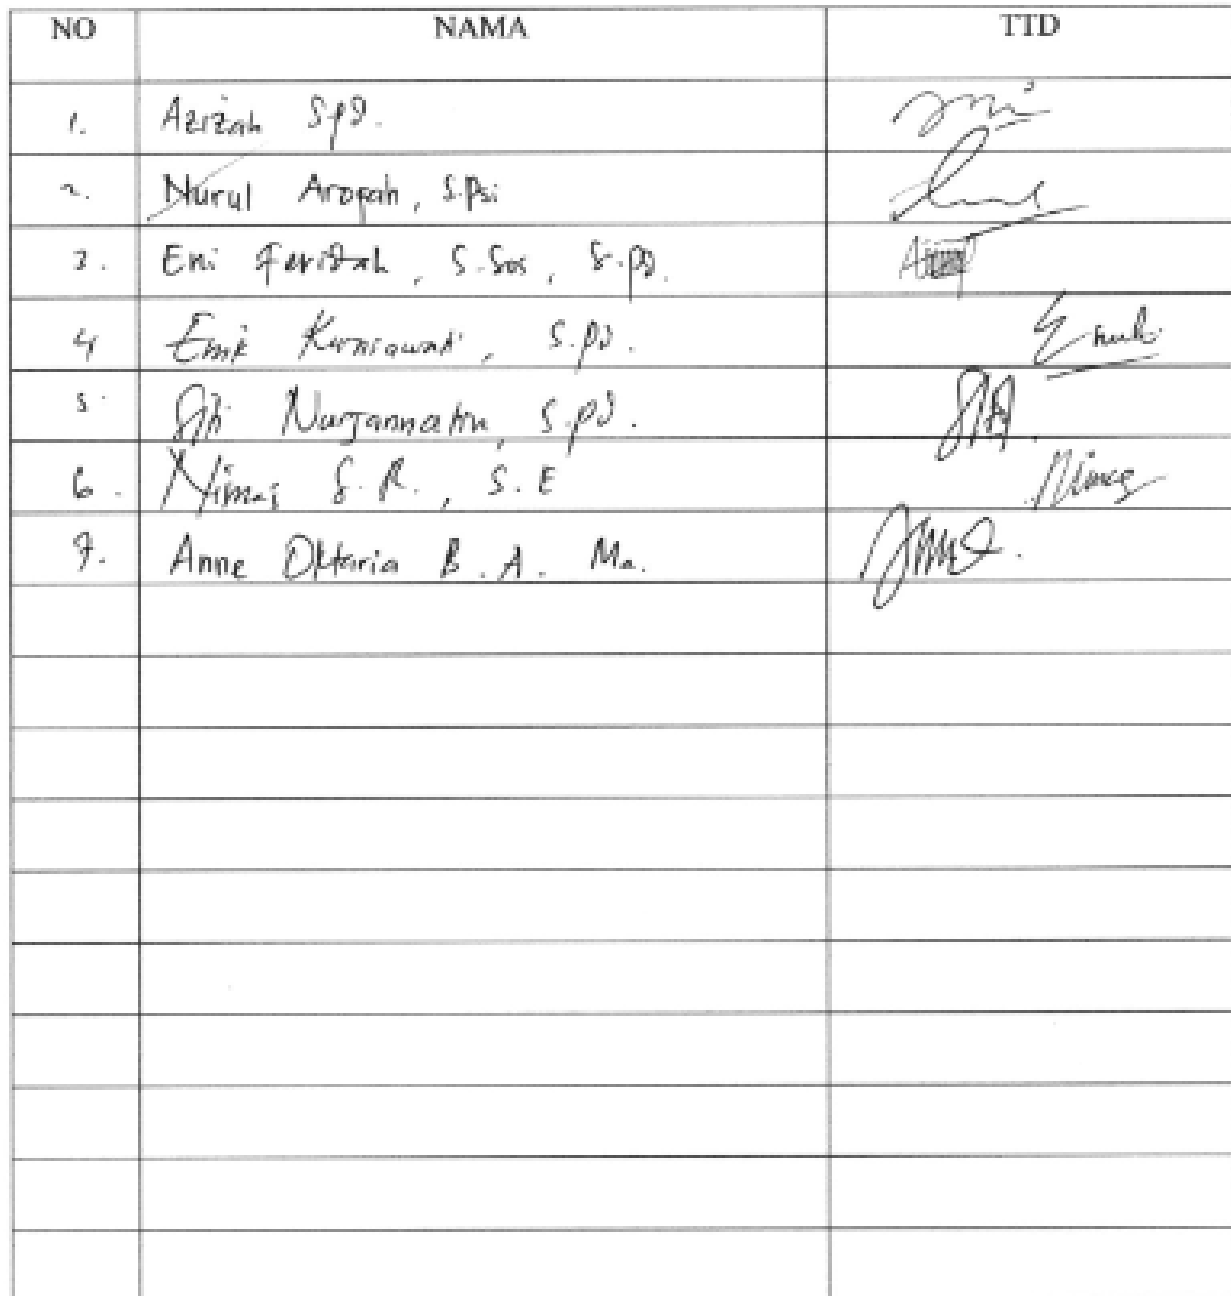 NO NAMA TTD
1. Azizah S.pd.
2. Nurul Arofah, S.Psi
3. Eni Faridah, S.Sos, S.pd.
4 Emik Kurniawati, S.pd. Emik
5. Siti Nurjannatin, S.pd. Siti
6. Nimas S.R., S.E Nimas
7. Anne Oktaria B.A. Ma.